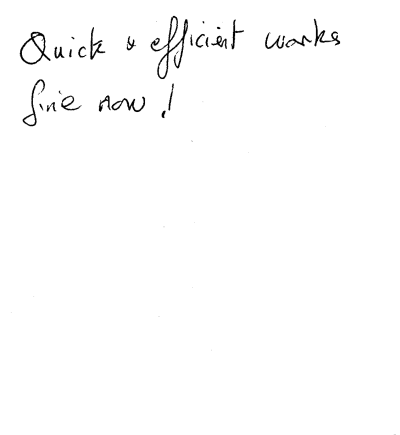 Quick & efficient works
fine now !